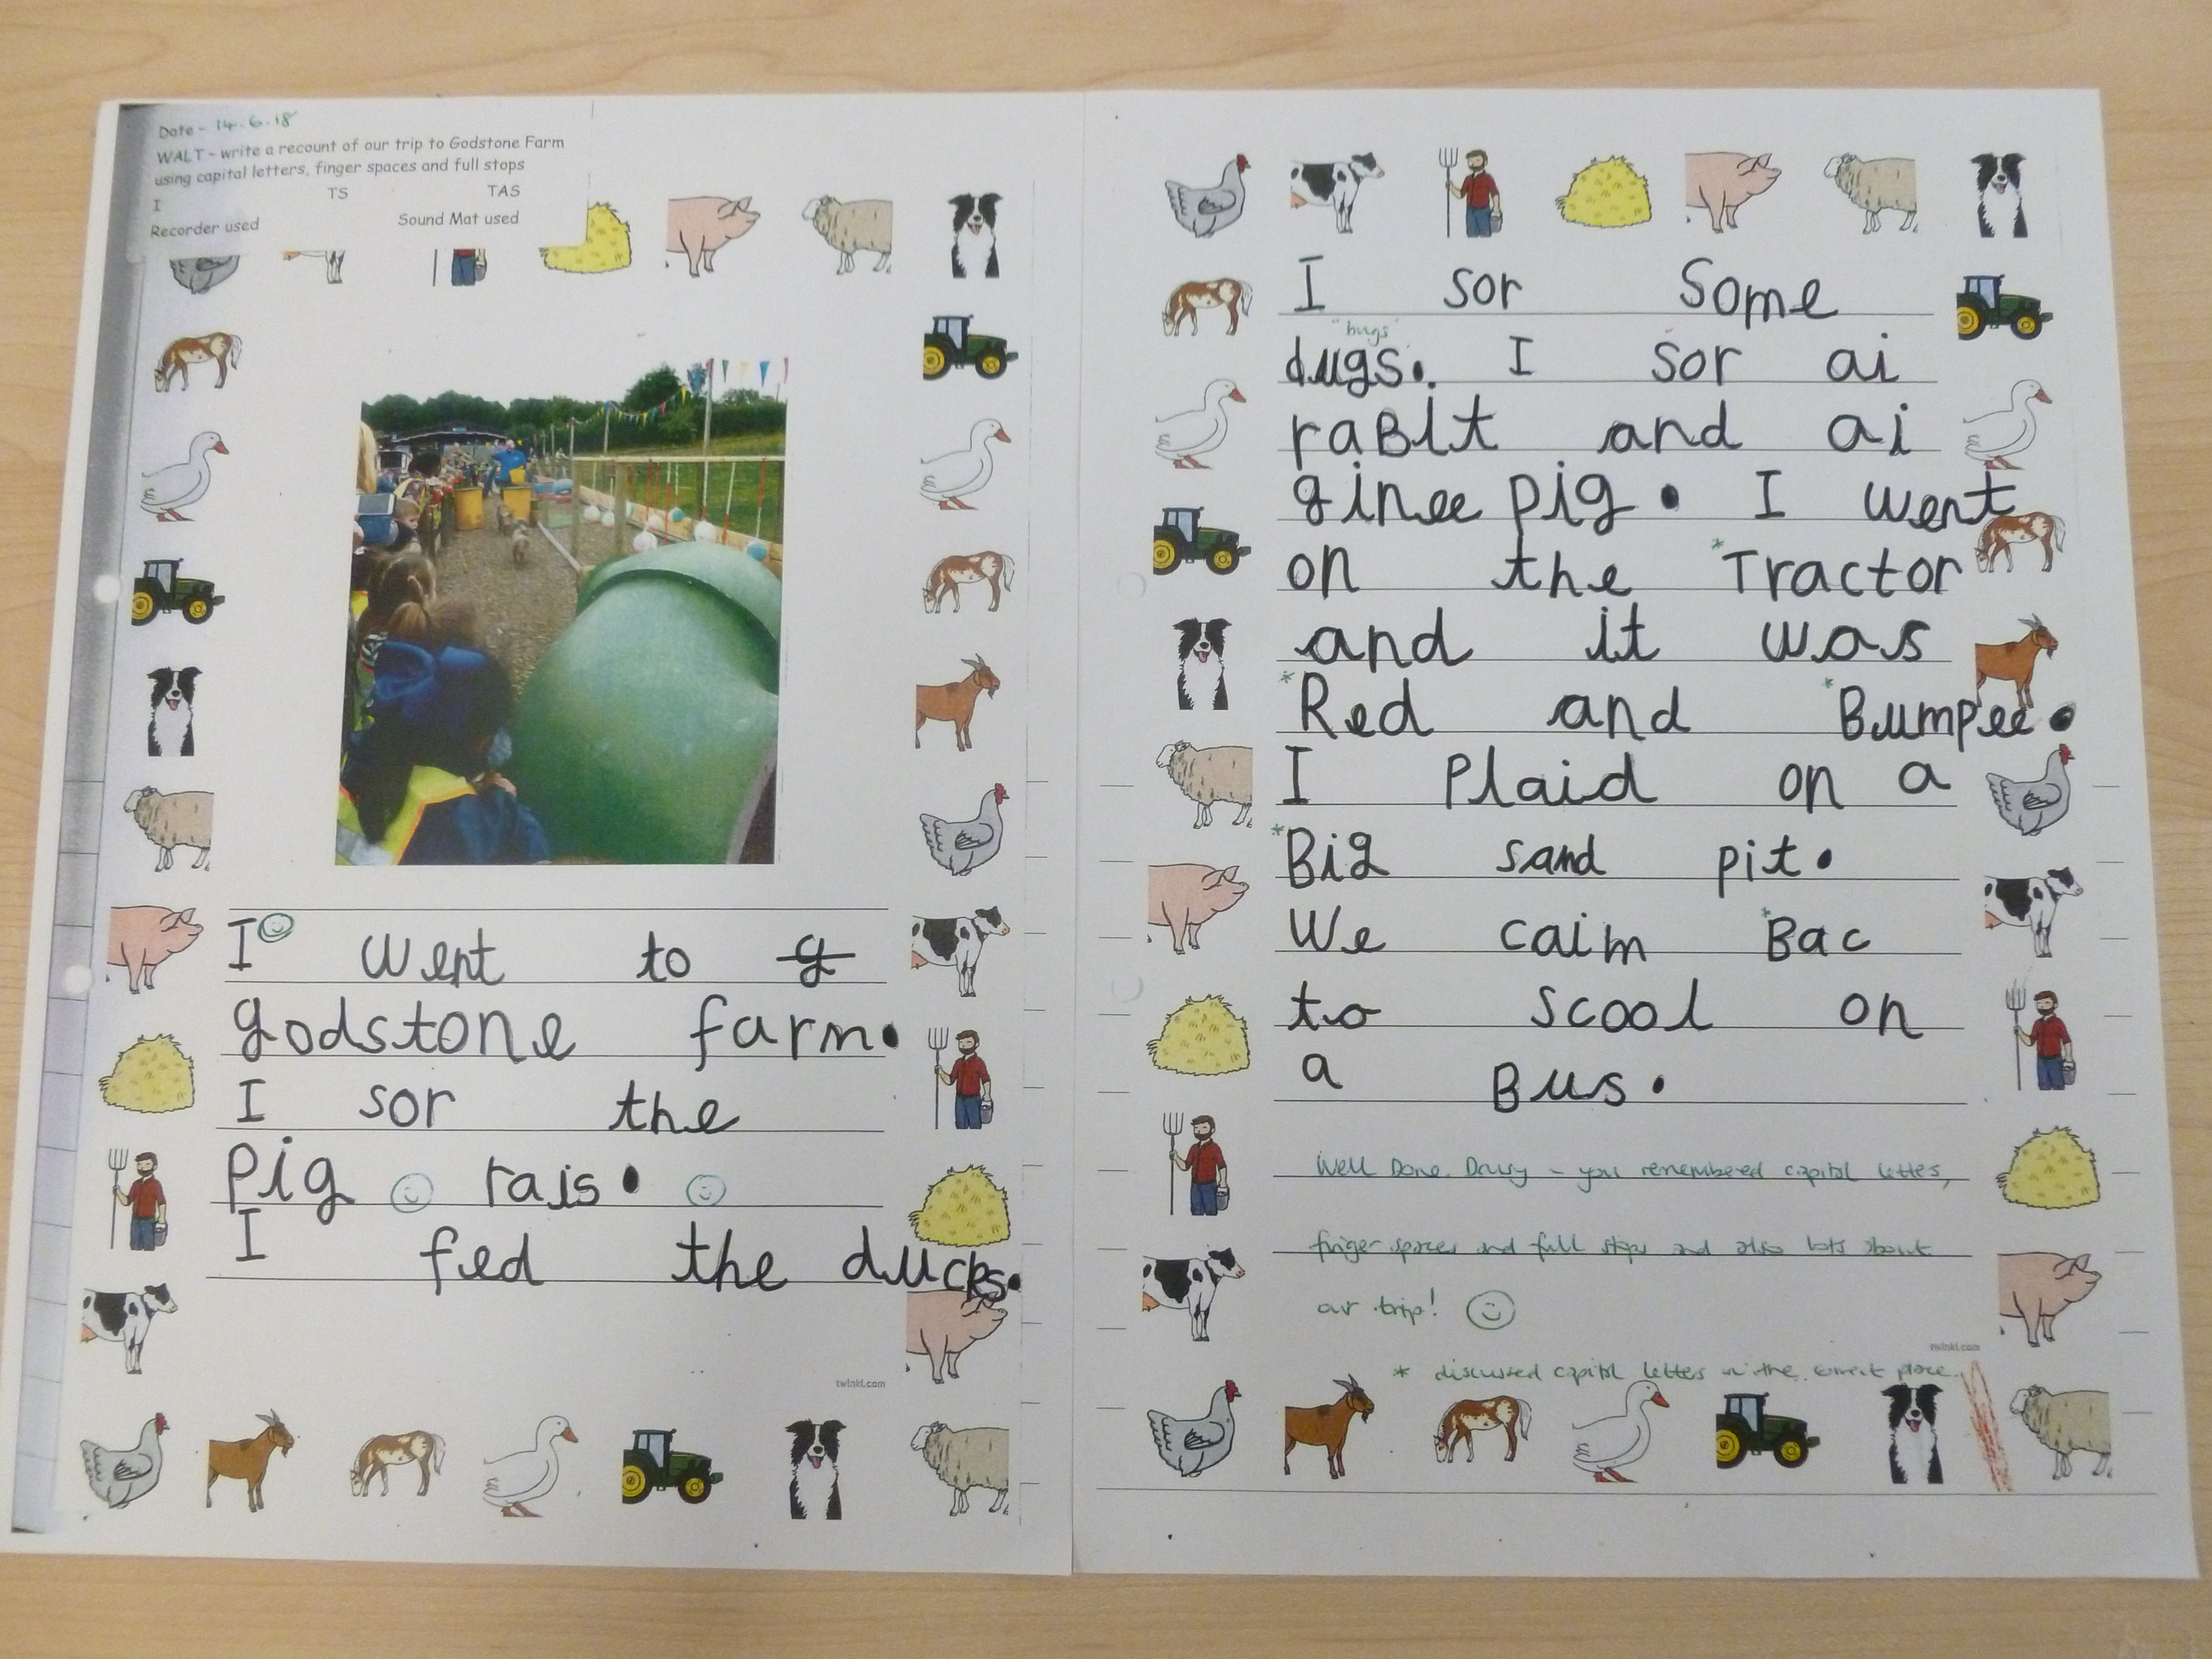 Date - 14.6.18
WALT - write a recount of our trip to Godstone Farm
using capital letters, finger spaces and full stops
I TS TAS
Recorder used Sound Mat used
I went to g
godstone farm.
I sor the
pig rais.
I fed the ducks.
twinkl.com
I sor Some
"bugs"
dugs. I sor ai
raBit and ai
ginee pig. I went
on the *Tractor
and it was
*Red and *Bumpee.
I Plaid on a
*Big sand pit.
We caim *Bac
to scool on
a Bus.
Well Done Daisy - you remembered capital letters,
finger spaces and full stops and also lots about
our trip!
twinkl.com
* discussed capital letters in the correct place.